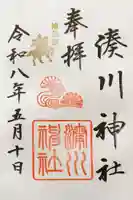 奉拝
湊川神社
令和八年五月十日
湊川
神社